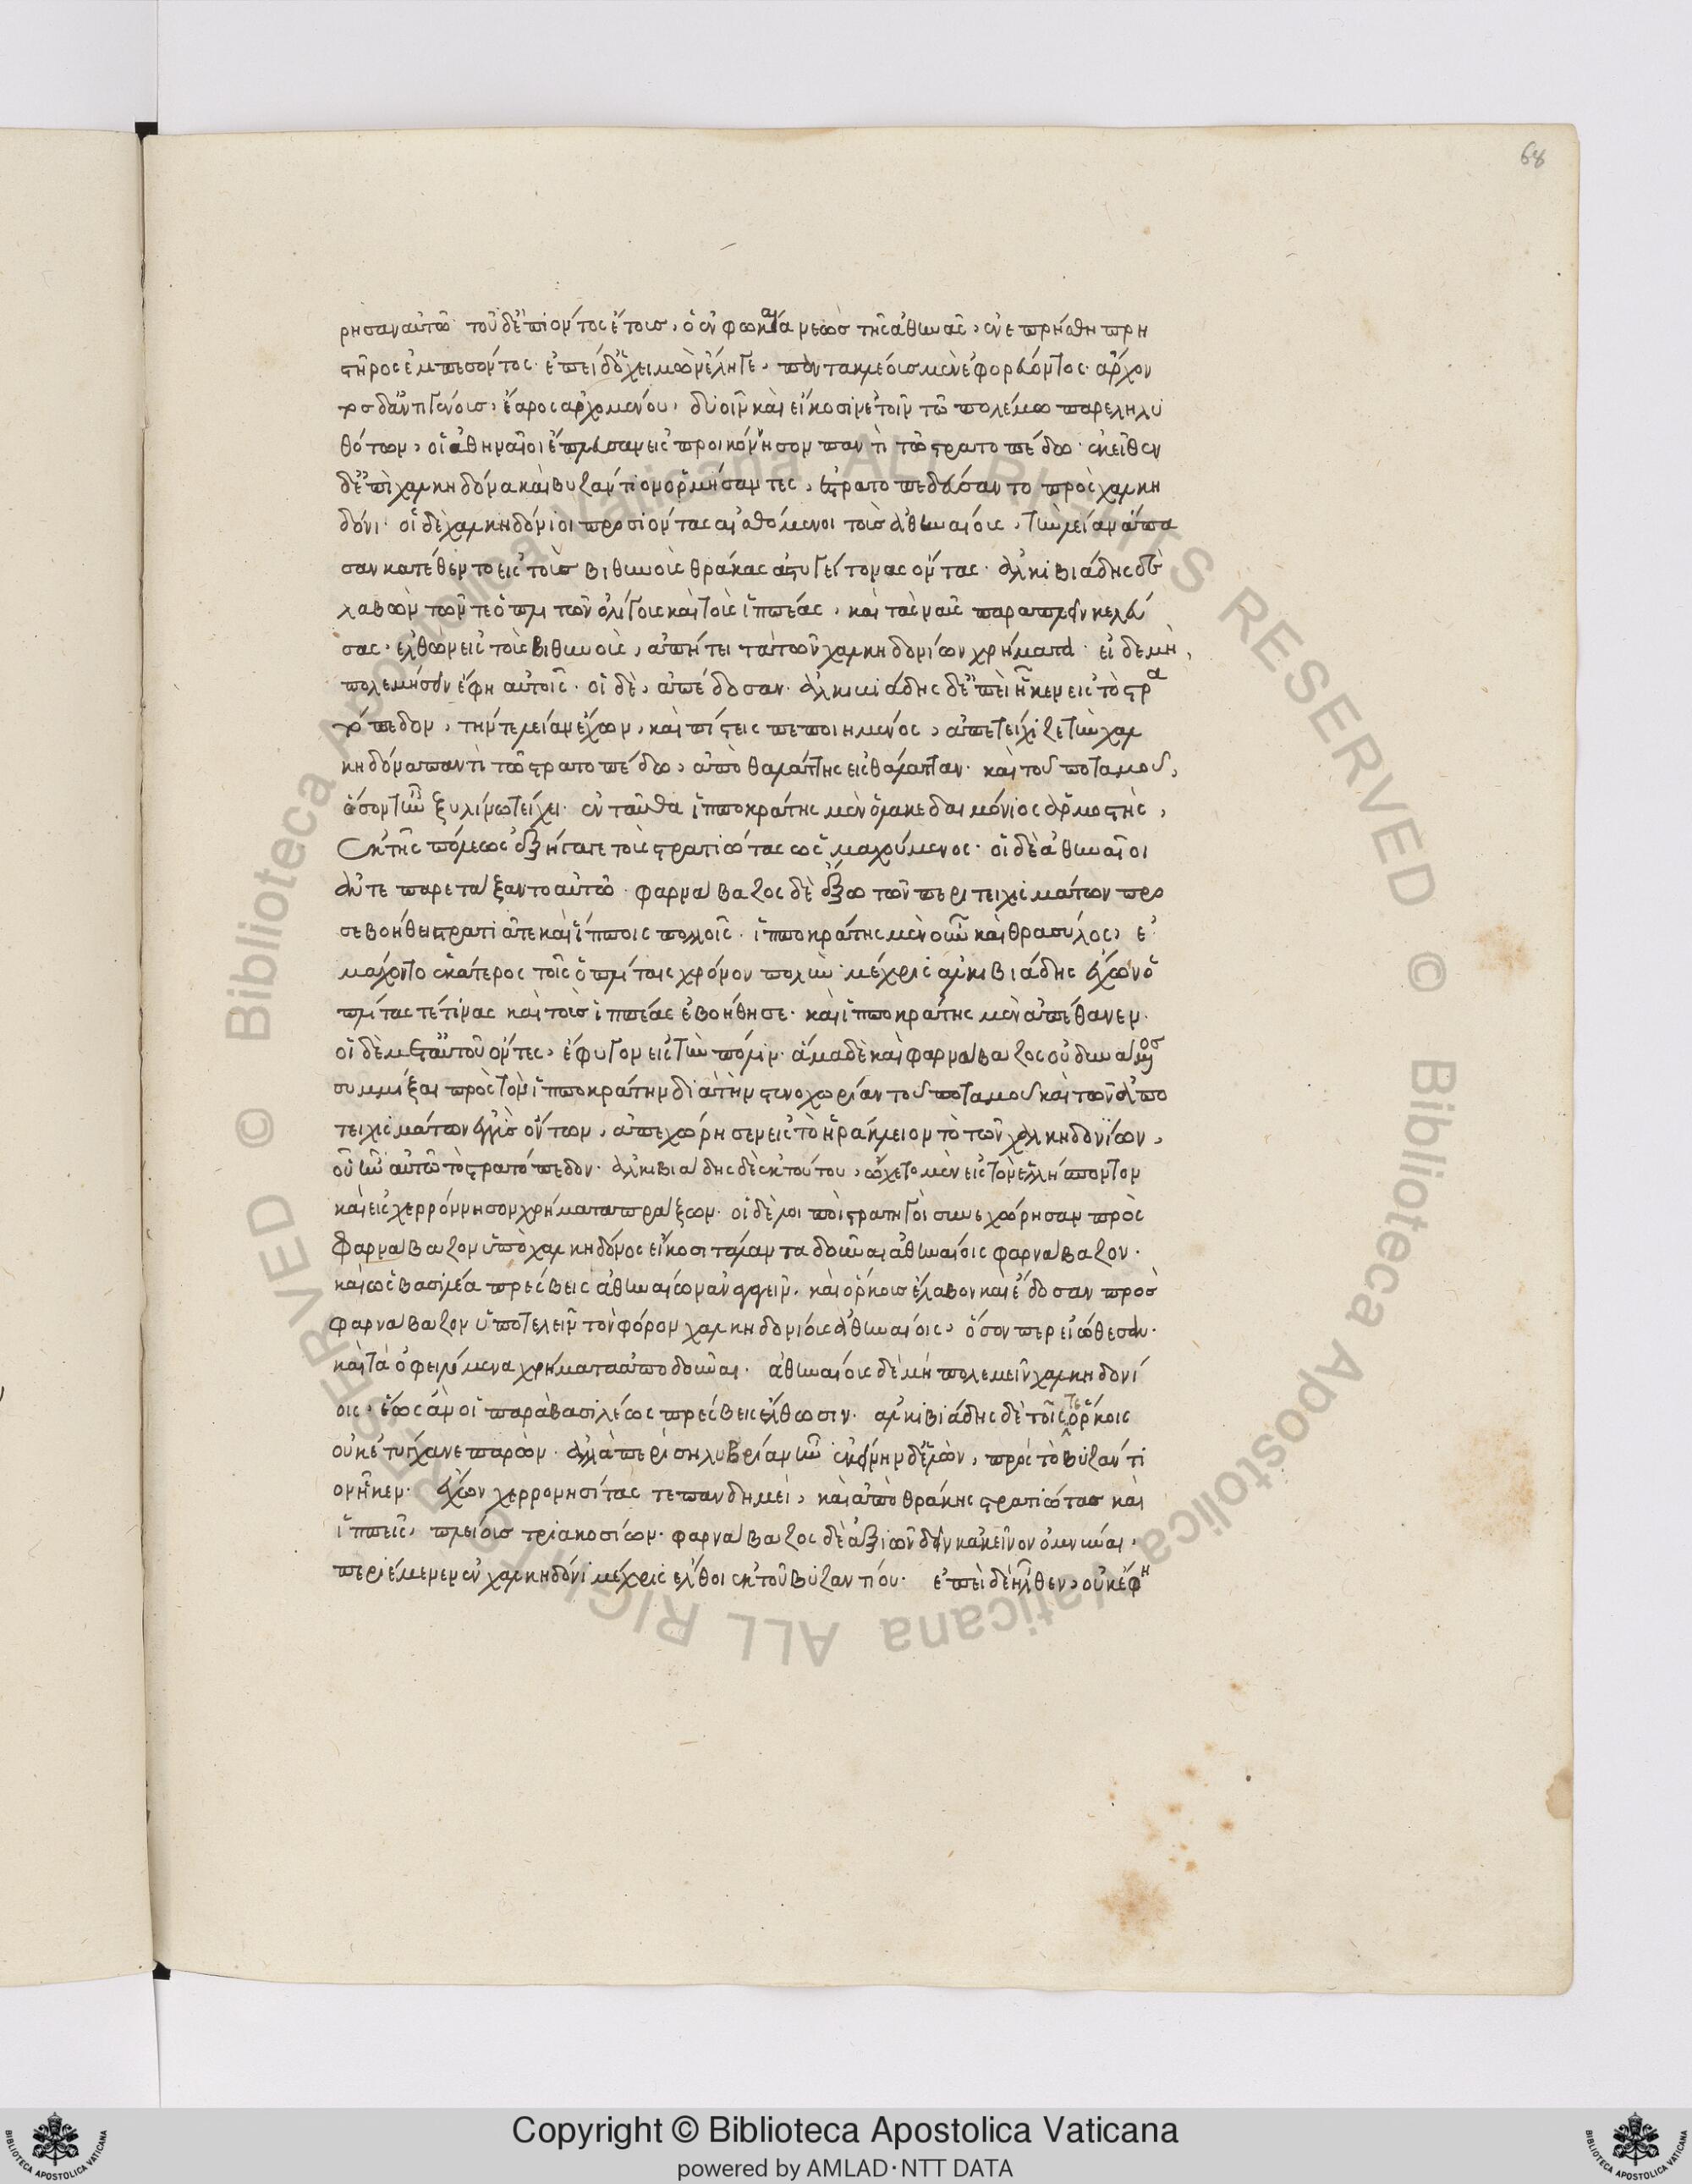 68
ρησαν αὐτῶ τοῦ δ᾽ ἐπιόντος ἔτους, ὁ ἐν φωκαία νεὼς τῆς ἀθηνᾶς, ἐνεπρήσθη πρη
στῆρος ἐμπεσόντος. ἐπεὶ δ᾽ ὁ χειμὼν ἔληγε, παντακλέους μὲν ἐφορεύοντος. ἄρχον
τος δ᾽ ἀντιγένους, ἔαρος ἀρχομένου, δυοῖν καὶ εἴκοσιν ἐτοῖν τῶ πολέμω παρεληλυ
θότων, οἱ ἀθηναῖοι ἔπλευσαν εἰς προικόνησον παντὶ τῶ στρατοπέδω. ἐκεῖθεν
δ᾽ ἐπὶ χαλκηδόνα καὶ βυζάντιον ὁρμήσαντες, ἐστρατοπεδεύσαντο πρὸς χαλκη
δόνι. οἱ δὲ χαλκηδόνιοι προσιόντας αἰσθόμενοι τοὺς ἀθηναίους, τὴν λείαν ἅπα
σαν κατέθεντο εἰς τοὺς βιθυνοὺς θρᾶκας ἀστυγείτονας ὄντας. ἀλκιβιάδης δὲ
λαβὼν τῶν τε ὁπλιτῶν ὀλίγους καὶ τοὺς ἱππέας, καὶ τὰς ναῦς παραπλεῖν κελεύ
σας. ἐλθὼν εἰς τοὺς βιθυνοὺς, ἀπήτει τὰ τῶν χαλκηδονίων χρήματα. εἰ δὲ μὴ,
πολεμήσειν ἔφη αὐτοῖς. οἱ δὲ, ἀπέδοσαν. ἀλκιβιάδης δ᾽ ἐπεὶ ἧκεν εἰς τὸ στρα
τόπεδον, τήν τε λείαν ἔχων, καὶ πίστεις πεποιημένος, ἀπετείχιζε τὴν χαλ
κηδόνα παντὶ τῶ στρατοπέδω, ἀπὸ θαλάττης εἰς θάλατταν. καὶ τοῦ ποταμοῦ,
ὅσον ἦν ξυλίνω τείχει. ἐνταῦθα ἱπποκράτης μὲν ὁ λακεδαιμόνιος ἁρμοστὴς,
ἐκ τῆς πόλεως ἐξήγαγε τοὺς στρατιώτας ὡς μαχούμενος. οἱ δὲ ἀθηναῖοι
ἀντιπαρετάξαντο αὐτῶ. φαρνάβαζος δὲ ἔξω τῶν περιτειχισμάτων προ
σεβοήθει στρατιᾶ τε καὶ ἵπποις πολλοῖς. ἱπποκράτης μὲν οὖν καὶ θράσυλος, ἐ
μάχοντο ἑκάτερος τοῖς ὁπλίταις χρόνον πολὺν. μέχρις ἀλκιβιάδης ἔχων ὁ
πλίτας τέ τινας καὶ τοὺς ἱππέας ἐβοήθησε. καὶ ἱπποκράτης μὲν ἀπέθανεν.
οἱ δὲ μετ᾽ αὐτοῦ ὄντες, ἔφυγον εἰς τὴν πόλιν. ἅμα δὲ καὶ φαρνάβαζος οὐ δυνάμενος
συμμίξαι πρὸς τὸν ἱπποκράτην διὰ τὴν στενοχωρίαν τοῦ ποταμοῦ καὶ τῶν ἀπο
τειχισμάτων ἐγγὺς ὄντων, ἀπεχώρησεν εἰς τὸ ἡράκλειον τὸ τῶν χαλκηδονίων,
οὗ ἦν αὐτῶ τὸ στρατόπεδον. ἀλκιβιάδης δὲ ἐκ τούτου, ὤχετο μὲν εἰς τὸν ἑλλήσποντον
καὶ εἰς χερρόννησον χρήματα πράξων. οἱ δὲ λοιποὶ στρατηγοὶ συνεχώρησαν πρὸς
φαρνάβαζον ὑπὸ χαλκηδόνος εἴκοσι τάλαντα δοῦναι ἀθηναίοις φαρνάβαζον.
καὶ ὡς βασιλέα πρέσβεις ἀθηναίων ἀναγαγεῖν. καὶ ὅρκους ἔλαβον καὶ ἔδοσαν πρὸς
φαρνάβαζον ὑποτελεῖν τὸν φόρον χαλκηδονίους ἀθηναίοις, ὅσον περ εἰώθεσαν.
καὶ τὰ ὀφειλόμενα χρήματα ἀποδοῦναι. ἀθηναίους δὲ μὴ πολεμεῖν χαλκηδονί
οις, ἕως ἂν οἱ παρὰ βασιλέως πρέσβεις ἔλθωσιν. ἀλκιβιάδης δὲ τοῖς τε ὅρκοις
οὐκ ἐτύγχανε παρὼν. ἀλλὰ περὶ σηλυβρίαν ἦν ἐκείνην δ᾽ ἑλὼν, πρὸς τὸ βυζάντι
ον ἧκεν. ἔχων χερρονησίτας τε πανδημεὶ, καὶ ἀπὸ θράκης στρατιώτας καὶ
ἱππεῖς, πλείους τριακοσίων. φαρνάβαζος δὲ ἀξιῶν δεῖν κἀκεῖνον ὀμνύναι,
περιέμενεν ἐν χαλκηδόνι μέχρις ἔλθοι ἐκ τοῦ βυζαντίου. ἐπεὶ δὲ ἦλθεν, οὐκ ἔφη
© Biblioteca Apostolica Vaticana ALL RIGHTS RESERVED © Biblioteca Apostolica Vaticana ALL RIGHTS RESERVED
Copyright © Biblioteca Apostolica Vaticana
powered by AMLAD・NTT DATA
BIBLIOTECA APOSTOLICA VATICANA
BIBLIOTECA APOSTOLICA VATICANA